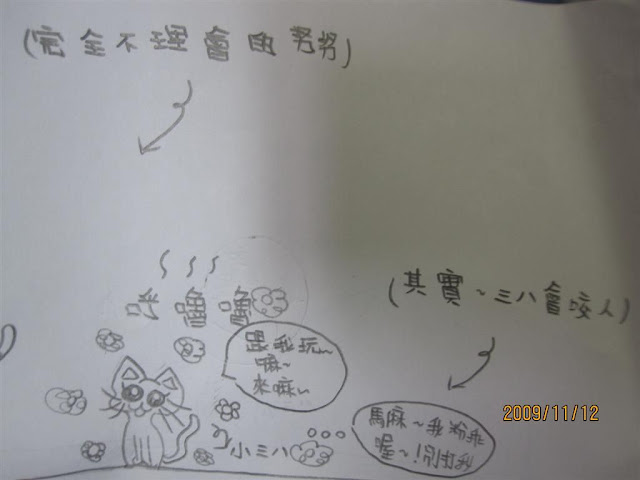 (完全不理會的努努)
呼嚕嚕
(其實~三八會咬人)
跟我玩~
嘛~
來嘛~
馬麻~我粉乖
喔~!別打我
小三八
2009/11/12